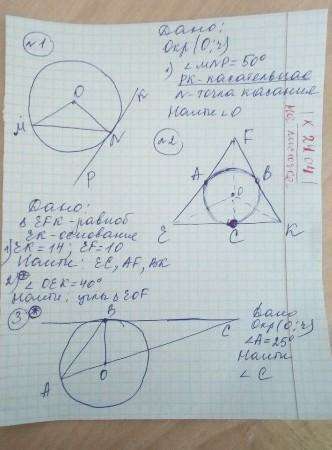 №1
Дано:
Окр(O;r)
∠MNP=50°
PK-касательная
N-точка касания
Найти ∠O
O
M
N
K
P
К 21.04
№2
F
A
B
O
E
C
K
Дано:
Δ EFK-равноб
EK-основание
1) EK=14; EF=10
Найти: EC, AF, AK
2)* ∠OEK=40°
Найти: углы Δ EOF
3*
B
C
O
A
Дано
Окр(O;r)
∠A=25°
Найти
∠C